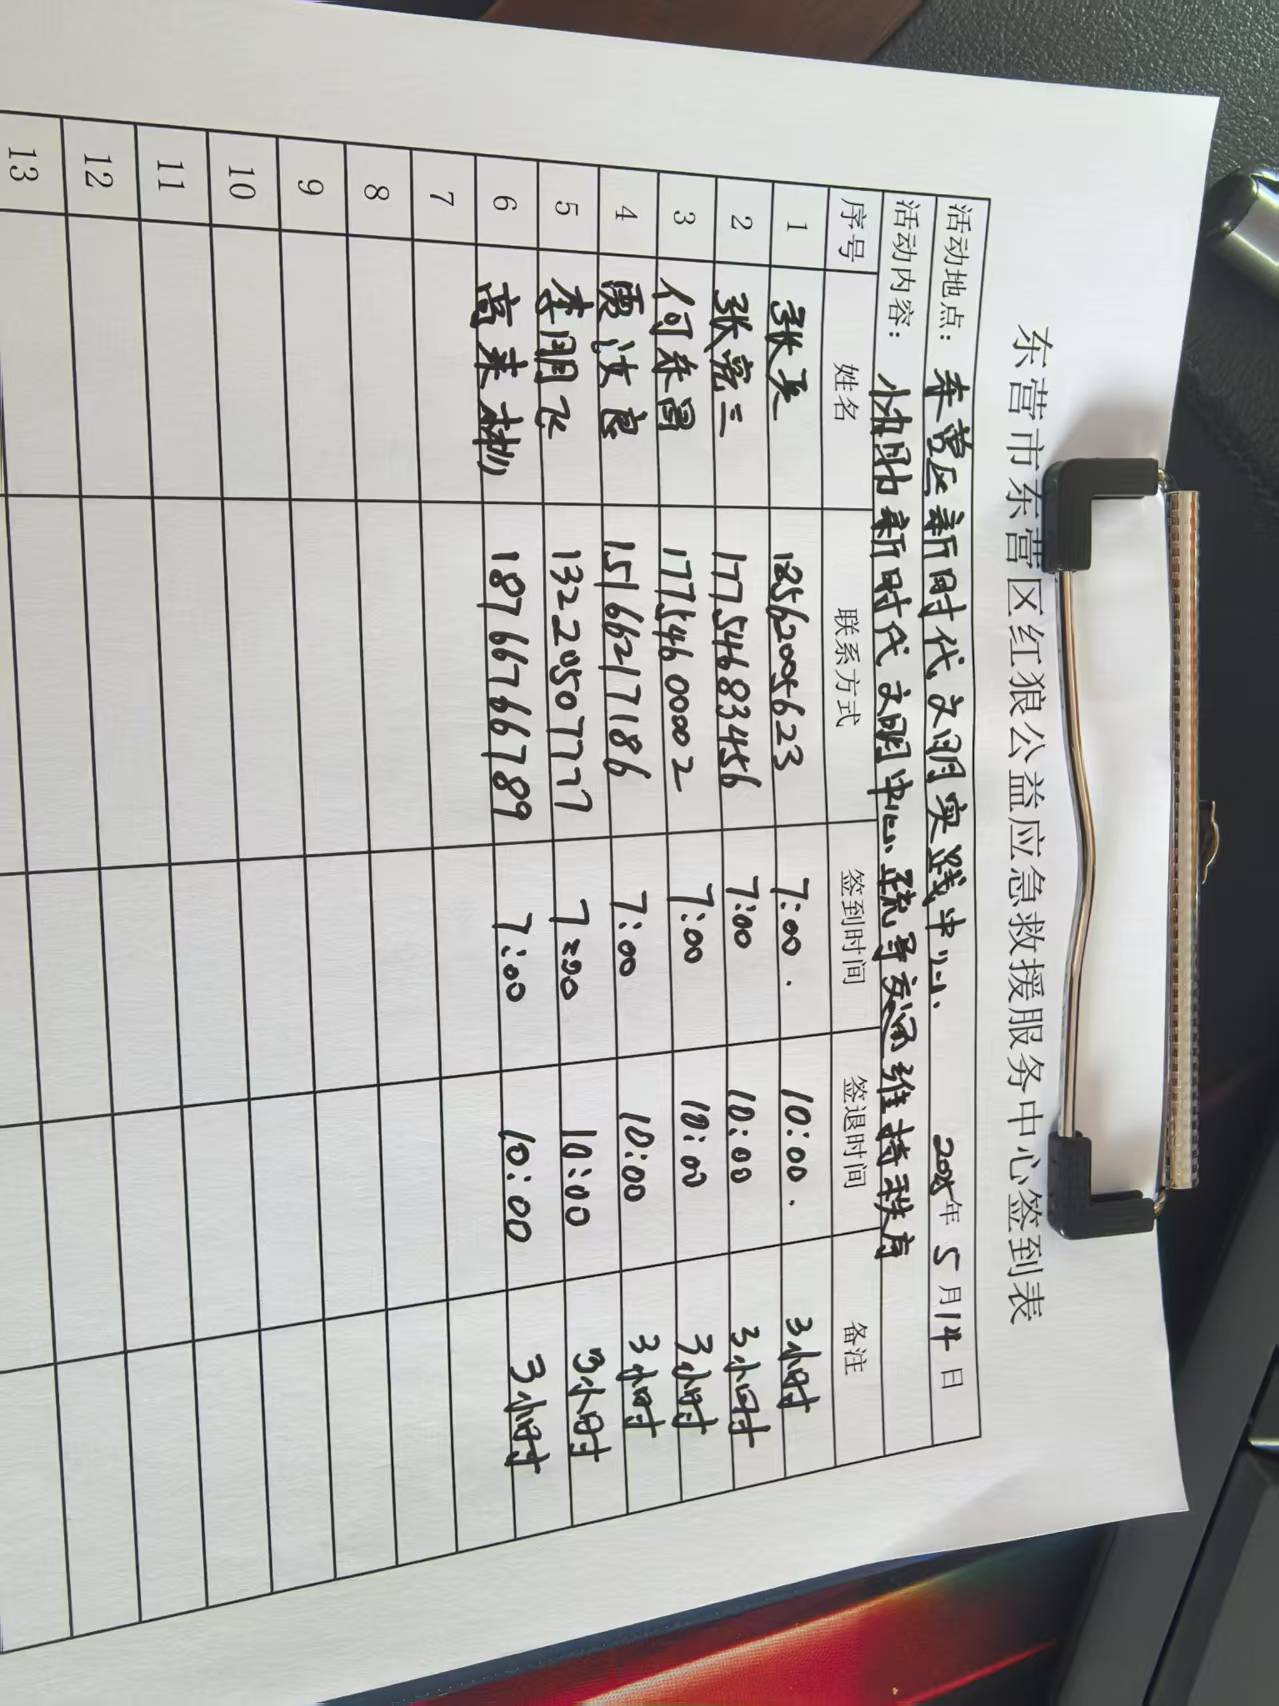 东营市东营区红狼公益应急救援服务中心签到表
活动地点：东营区新时代文明实践中心 2025年 5月14日
活动内容：协助新时代文明中心疏导交通维持秩序
序号 姓名 联系方式 签到时间 签退时间 备注
1 张 18562005623 7:00. 10:00. 3小时
2 张宪三 17754683456 7:00 10:00 3小时
3 何乐昌 17754660002 7:00 10:00 3小时
4 贾汝良 15166217186 7:00 10:00 3小时
5 李朋飞 13220507777 7:00 10:00 3小时
6 高来彬 18766766789 7:00 10:00 3小时
7
8
9
10
11
12
13